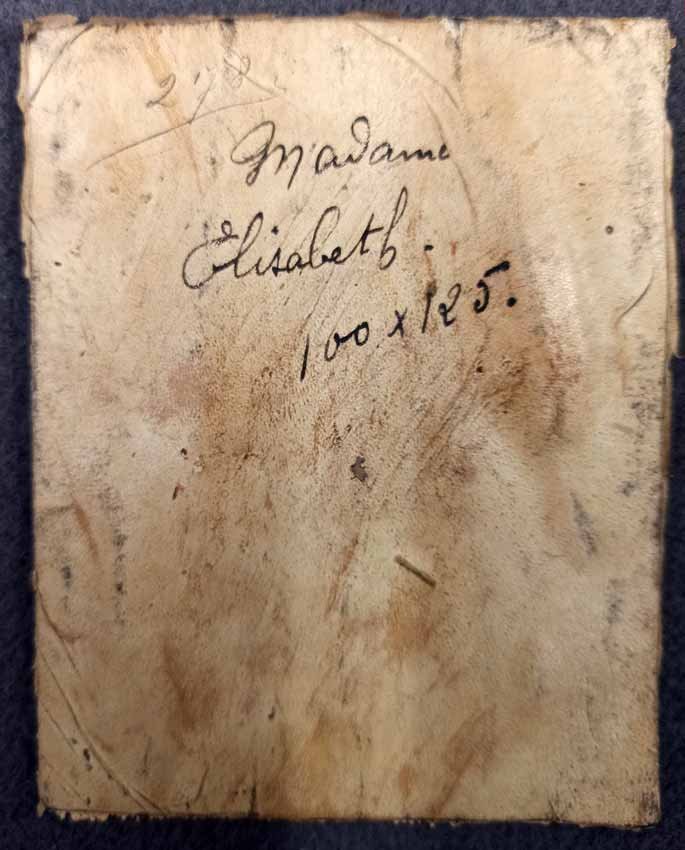 278
Madame
Elisabeth.
100 x 125.